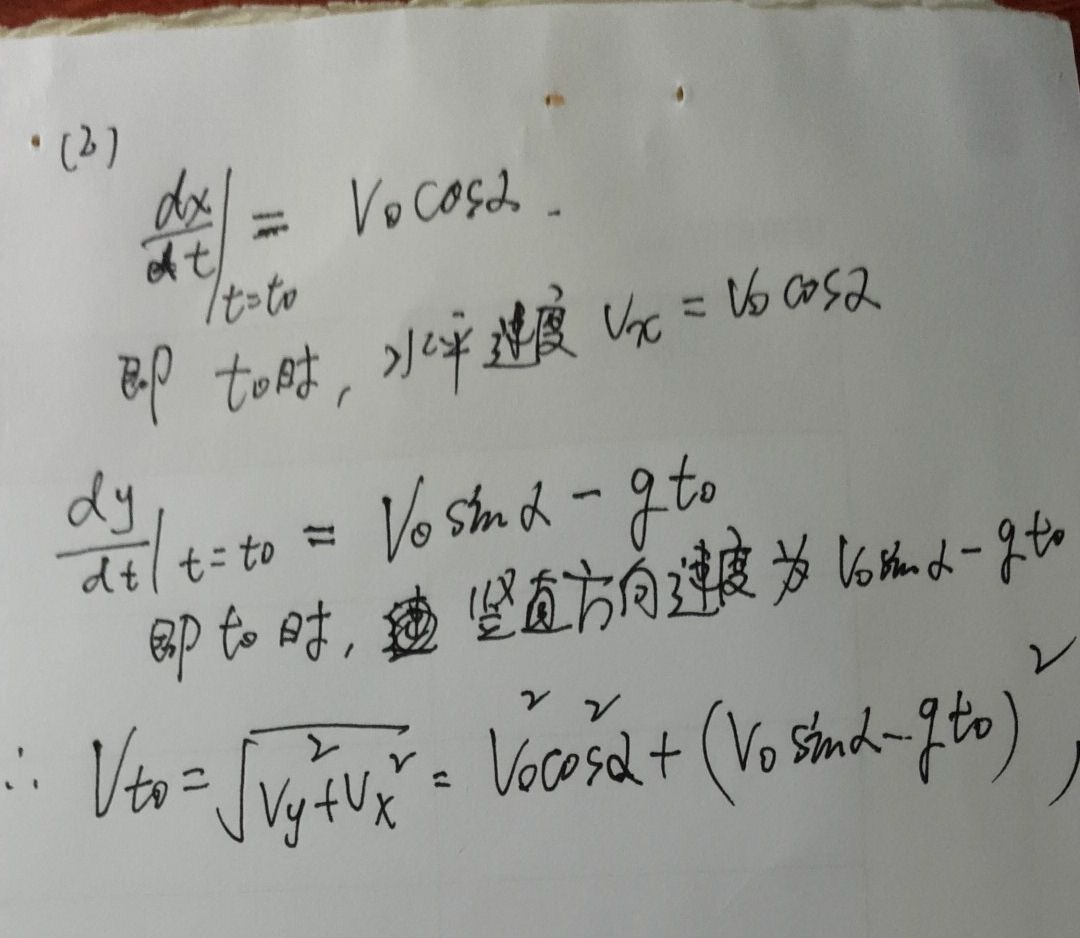 (2)
dx/dt|t=t₀ = V₀cosα.
即 t₀时, 水平速度 Vx = V₀cosα
dy/dt|t=t₀ = V₀sinα - gt₀
即 t₀ 时, 竖直方向速度为 V₀sinα - gt₀
∴ Vt₀ = √(Vy²+Vx²) = V₀²cos²α + (V₀sinα - gt₀)²,